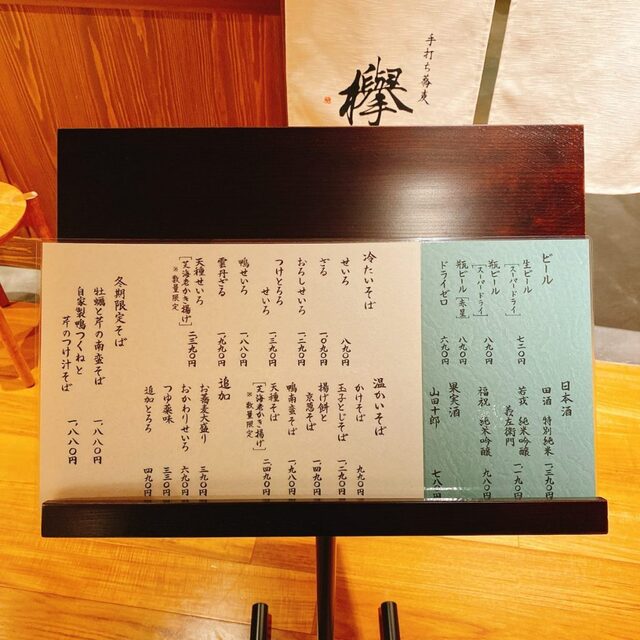 手打ち蕎麦
欅
ビール
生ビール
[スーパードライ]
七三〇円
瓶ビール
[スーパードライ]
八九〇円
瓶ビール[赤星]
八九〇円
ドライゼロ
六九〇円
日本酒
田酒 特別純米
一三九〇円
若戎 純米吟醸
義左衛門
一一九〇円
福祝 純米吟醸
九八〇円
果実酒
山田十郎
七八〇円
冷たいそば
せいろ
八九〇円
ざる
一〇九〇円
おろしせいろ
一三九〇円
つけとろろ
せいろ
一二九〇円
鴨せいろ
一八八〇円
雲丹ざる
一九九〇円
天種せいろ
[芝海老かき揚げ]
※数量限定
二三九〇円
冬期限定そば
牡蠣と芹の南蛮そば
一八八〇円
自家製鴨つくねと
芹のつけ汁そば
一八八〇円
温かいそば
かけそば
九九〇円
玉子とじそば
一二九〇円
揚げ餅と
京葱そば
一四九〇円
鴨南蛮そば
一九八〇円
天種そば
[芝海老かき揚げ]
※数量限定
二四九〇円
追加
お蕎麦大盛り
三九〇円
おかわりせいろ
六九〇円
つゆ薬味
三三〇円
追加とろろ
四九〇円